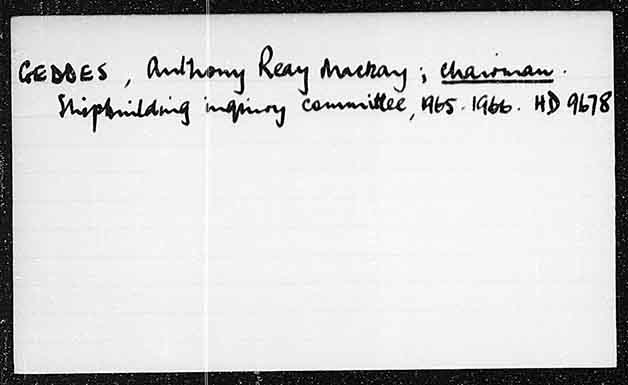 GEDDES, Anthony Reay Mackay; chairman.
Shipbuilding inquiry committee, 1965-1966. HD 9678